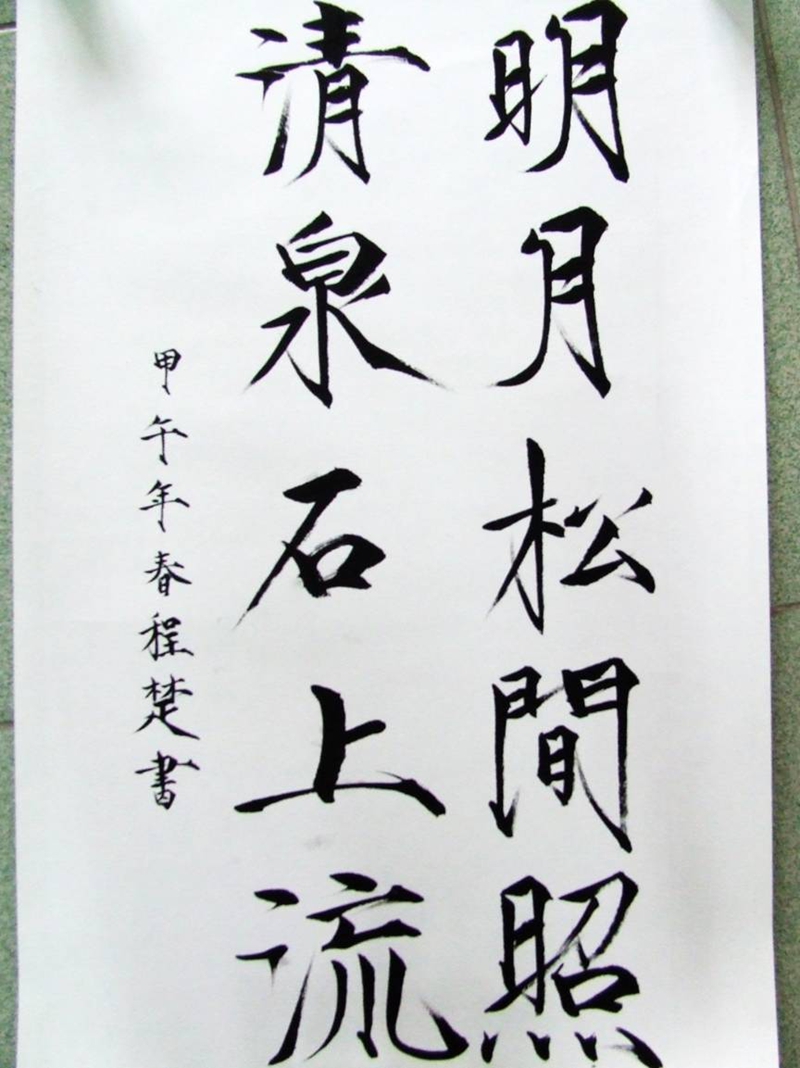 明月松間照
清泉石上流
甲午年春程楚書